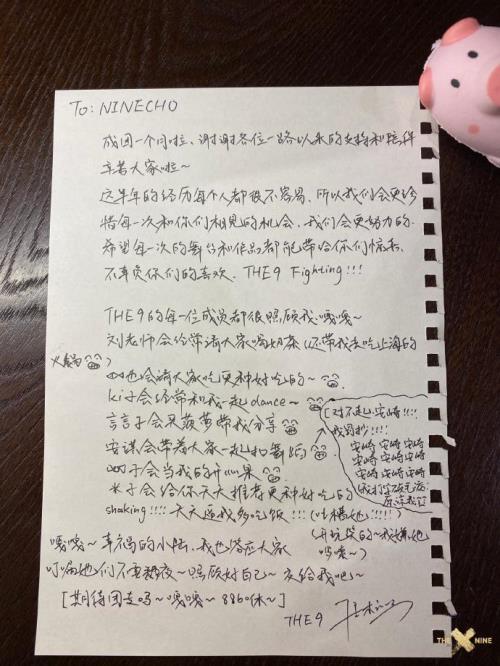 To: NINECHO
成团一个月啦、谢谢各位一路以来的支持和陪伴
辛苦大家啦～
这半年的经历每个人都很不容易、所以我们会更珍
惜每一次和你们相见的机会、我们会更努力的.
希望每一次的舞台和作品都能带给你们惊喜、
不辜负你们的喜欢. THE9 Fighting!!!
THE9的每一位成员都很照顾我嘎嘎～
刘老师会经常请大家喝奶茶(还带我去吃上海的
火锅)
也会请大家吃更种好吃的～
ki子会经常和我一起dance～
言言子会买菠萝带我分享
安谋会带着大家一起扣舞蹈
子会当我的开心果
米子会给你天天推荐更种好吃的
shaking!!!! 天天逼我多吃饭!!! (吐槽她!!!!)
(对不起安崎!!!!
我罚抄!!!!
安崎 安崎 安崎
安崎 安崎 安崎
安崎 安崎 安崎
(开玩笑的～我揍她
嘎嘎～)
嘎嘎～幸福的小陆、我也答应大家
叮嘱她们不要熬夜～照顾好自己～交给我吧～
[期待团专吗～嘎嘎～886休～]
THE9
THE NINE